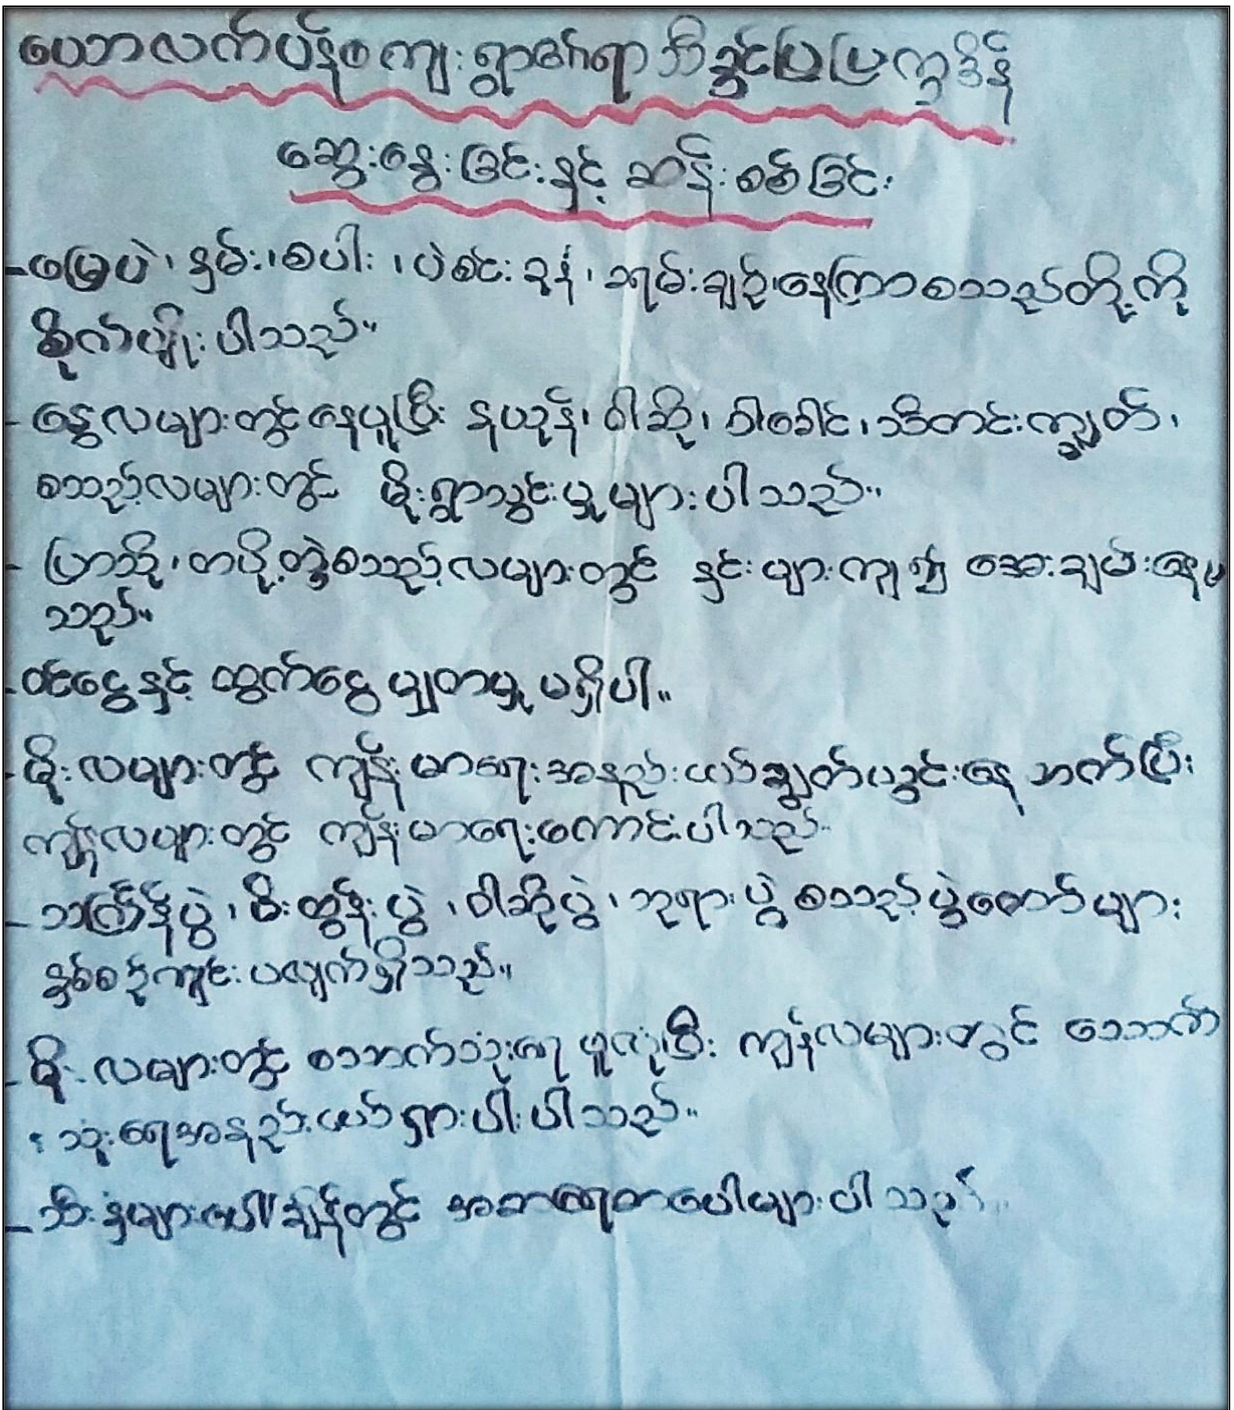 ယောလက်ပန်စကျေးရွာ၏ရာသီခွင်ပြပြက္ခဒိန်
ဆွေးနွေးခြင်းနှင့် ဆန်းစစ်ခြင်း
-မြေပဲ၊ နှမ်း၊စပါး ၊ပဲစင်းငုံ၊ သရမ်းချဉ်၊နေကြာစသည်တို့ကို
စိုက်ပျိုးပါသည်။
-နွေလများတွင်နေပူပြီး နယုန်၊ ဝါဆို၊ ဝါခေါင်၊သီတင်းကျွတ်၊
စသည့်လများတွင် မိုးရွာသွင်းမှုများပါသည်။
- ပြာသို၊တပို့တွဲစသည့်လများတွင် နှင်းများကျ၍ အေးချမ်းနေပါ
သည်။
-ဝင်ငွေနှင့် ထွက်ငွေ မျှတမှု မရှိပါ။
-မိုးလများတွင် ကျန်းမာရေးအနည်းငယ်ချွတ်ယွင်းနေ တက်ပြီး
ကျန်လများတွင် ကျန်းမာရေးကောင်းပါသည်။
-သင်္ကြန်ပွဲ၊ မီးထွန်းပွဲ ၊ဝါဆိုပွဲ၊ဘုရားပွဲ စသည့်ပွဲတော်များ
နှစ်စဉ်ကျင်းပလျက်ရှိသည်။
-မိုးလများတွင် သောက်သုံးရေ ဖူလုံပြီး ကျန်လများတွင် သောက်
သုံးရေအနည်းငယ်ရှားပါးပါသည်။
-သီးနှံများပေါ်ချိန်တွင် အစာရေစာပေါများပါသည်။